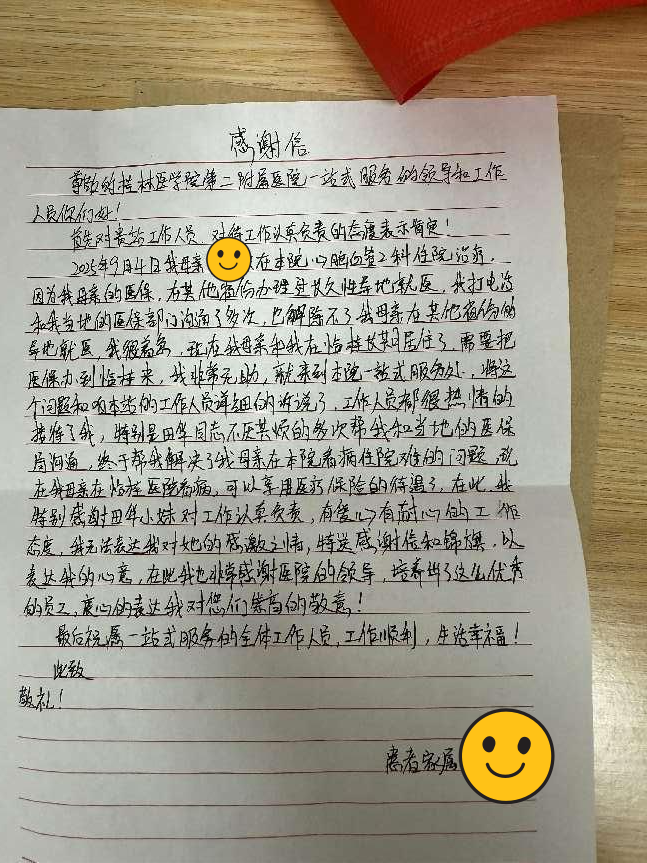 感谢信
尊敬的桂林医学院第二附属医院一站式服务的领导和工作
人员你们好！
首先对贵站工作人员、对待工作认真负责的态度表示肯定！
2025年9月4日我母亲在本院心脑血管2科住院治疗，
因为我母亲的医保，在其他省份办理过长久性异地就医，我打电话
和我当地的医保部门沟通了多次，也解除不了我母亲在其他省份的
异地就医，我很着急，现在我母亲和我在临桂居住了，需要把
医保办到临桂来，我非常无助，就来到本院一站式服务处，将这
个问题和咱本站的工作人员详细的诉说了，工作人员都很热情的
接待了我，特别是田华同志不厌其烦的多次帮我和当地的医保
局沟通，终于帮我解决了我母亲在本院看病住院难的问题，现
在我母亲在临桂医院看病，可以享用医疗保险的待遇了，在此，我
特别感谢田华小妹对工作认真负责，有爱心有耐心的工作
态度，我无法表达我对她的感激之情，特送感谢信和锦旗，以
表达我的心意，在此我也非常感谢医院的领导，培养出了这么优秀
的员工，衷心的表达我对您们崇高的敬意！
最后祝愿一站式服务的全体工作人员，工作顺利，生活幸福！
此致
敬礼！
患者家属